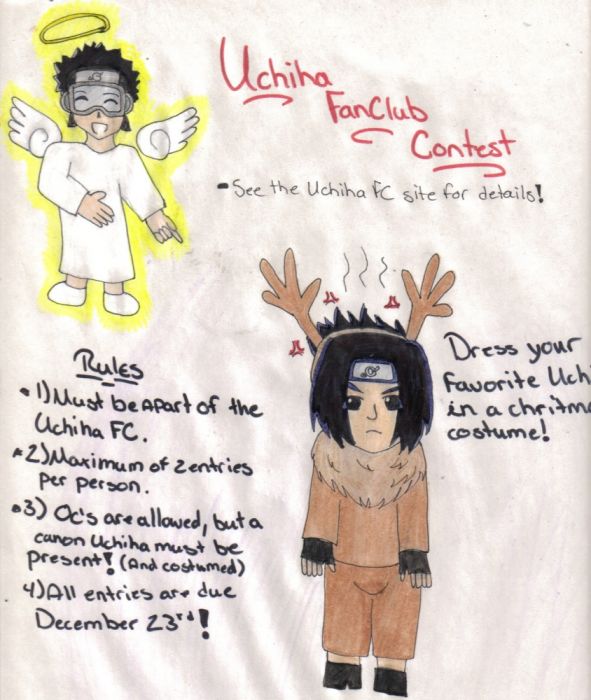 Uchiha
FanClub
Contest
- See the Uchiha FC site for details!
Dress your
favorite Uch
in a chritma
costume!
Rules
1) Must be apart of the
Uchiha FC.
2) Maximum of 2 entries
per person.
3) OC's are allowed, but a
canon Uchiha must be
present! (And costumed)
4) All entries are due
December 23rd!